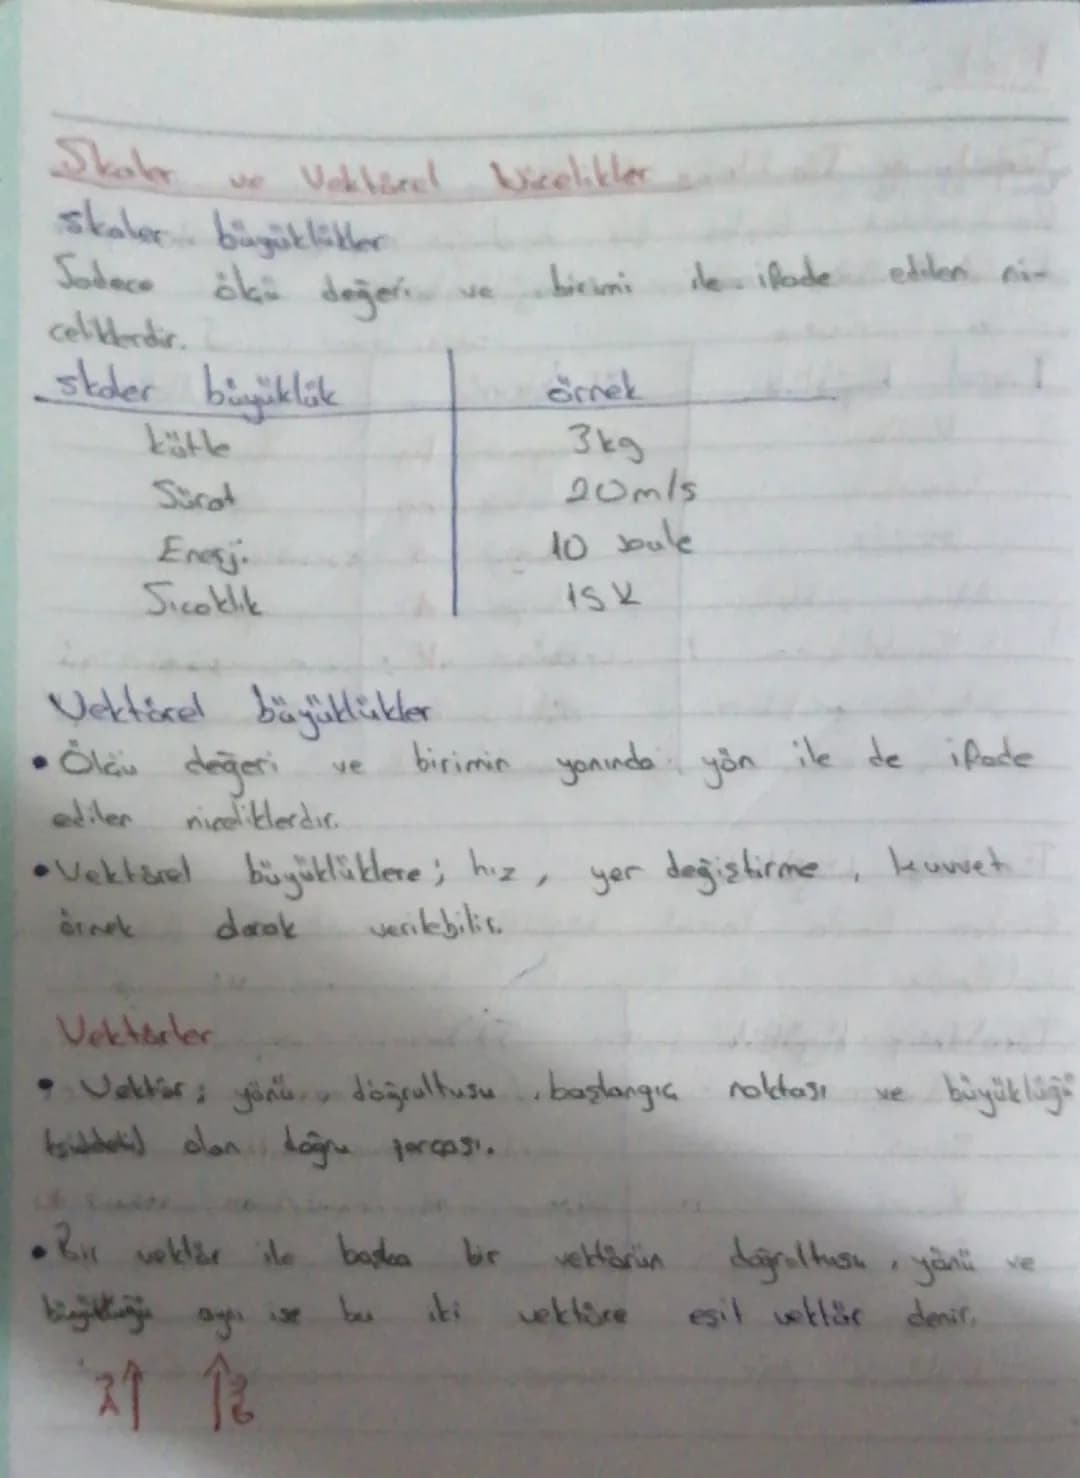 Skaler ve Vektörel Nicelikler
skaler büyüklükler
Sadece ölçü değeri ve birimi ile ifade edilen ni-
celiklerdir.
skaler büyüklük örnek
kütle 3kg
Sürat 20m/s
Enerji 10 Joule
Sıcaklık 15 K
Vektörel büyüklükler
• Ölçü değeri ve birimin yanında yön ile de ifade
edilen niceliklerdir.
• Vektörel büyüklüklere; hız, yer değiştirme, kuvvet
örnek olarak verilebilir.
Vektörler
• Vektör; yönü, doğrultusu, başlangıç noktası ve büyüklüğü
(şiddeti) olan doğru parçası.
• Bir vektör ile başka bir vektörün doğrultusu, yönü ve
büyüklüğü aynı ise bu iki vektöre eşit vektör denir.